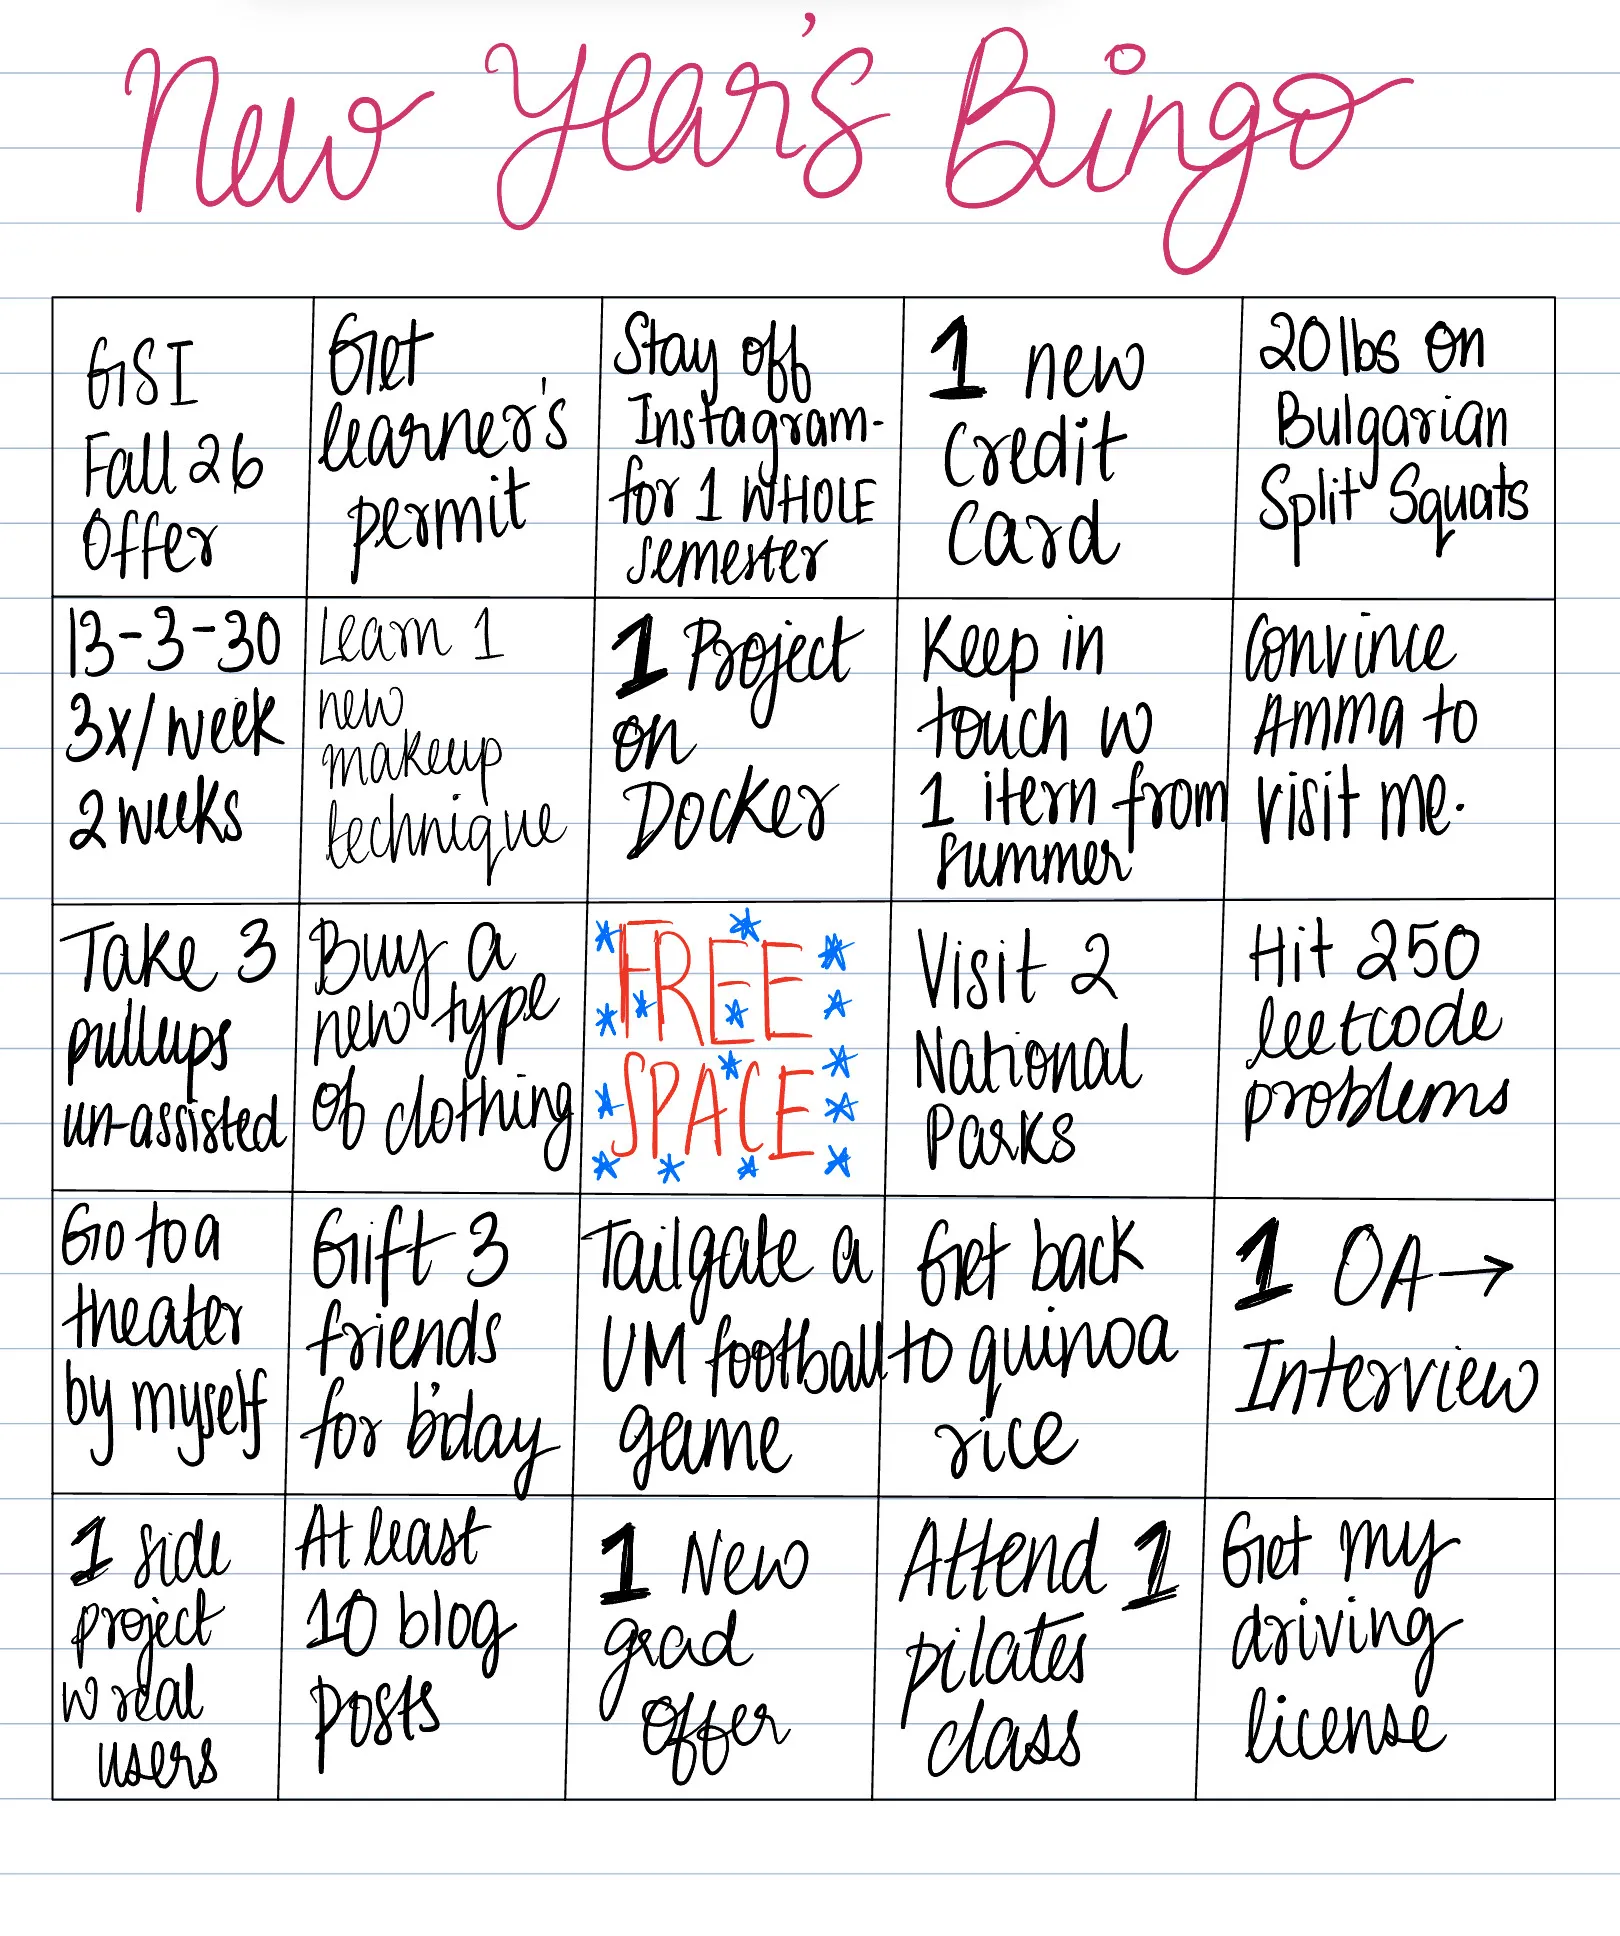 New Year's Bingo
GSI
Fall 26
Offer
Get
learner's
permit
Stay off
Instagram-
for 1 WHOLE
semester
1 new
Credit
Card
20lbs on
Bulgarian
Split Squats
13-3-30
3x/week
2 weeks
Learn 1
new
makeup
technique
1 Project
on
Docker
Keep in
touch w
1 itern from
summer
Convince
Amma to
visit me.
Take 3
pullups
un-assisted
Buy a
new type
of clothing
FREE
SPACE
Visit 2
National
Parks
Hit 250
leetcode
problems
Go to a
theater
by myself
Gift 3
friends
for b'day
Tailgate a
UM football
game
Get back
to quinoa
rice
1 OA→
Interview
1 side
project
w real
users
At least
10 blog
posts
1 New
grad
offer
Attend 1
pilates
class
Get my
driving
license